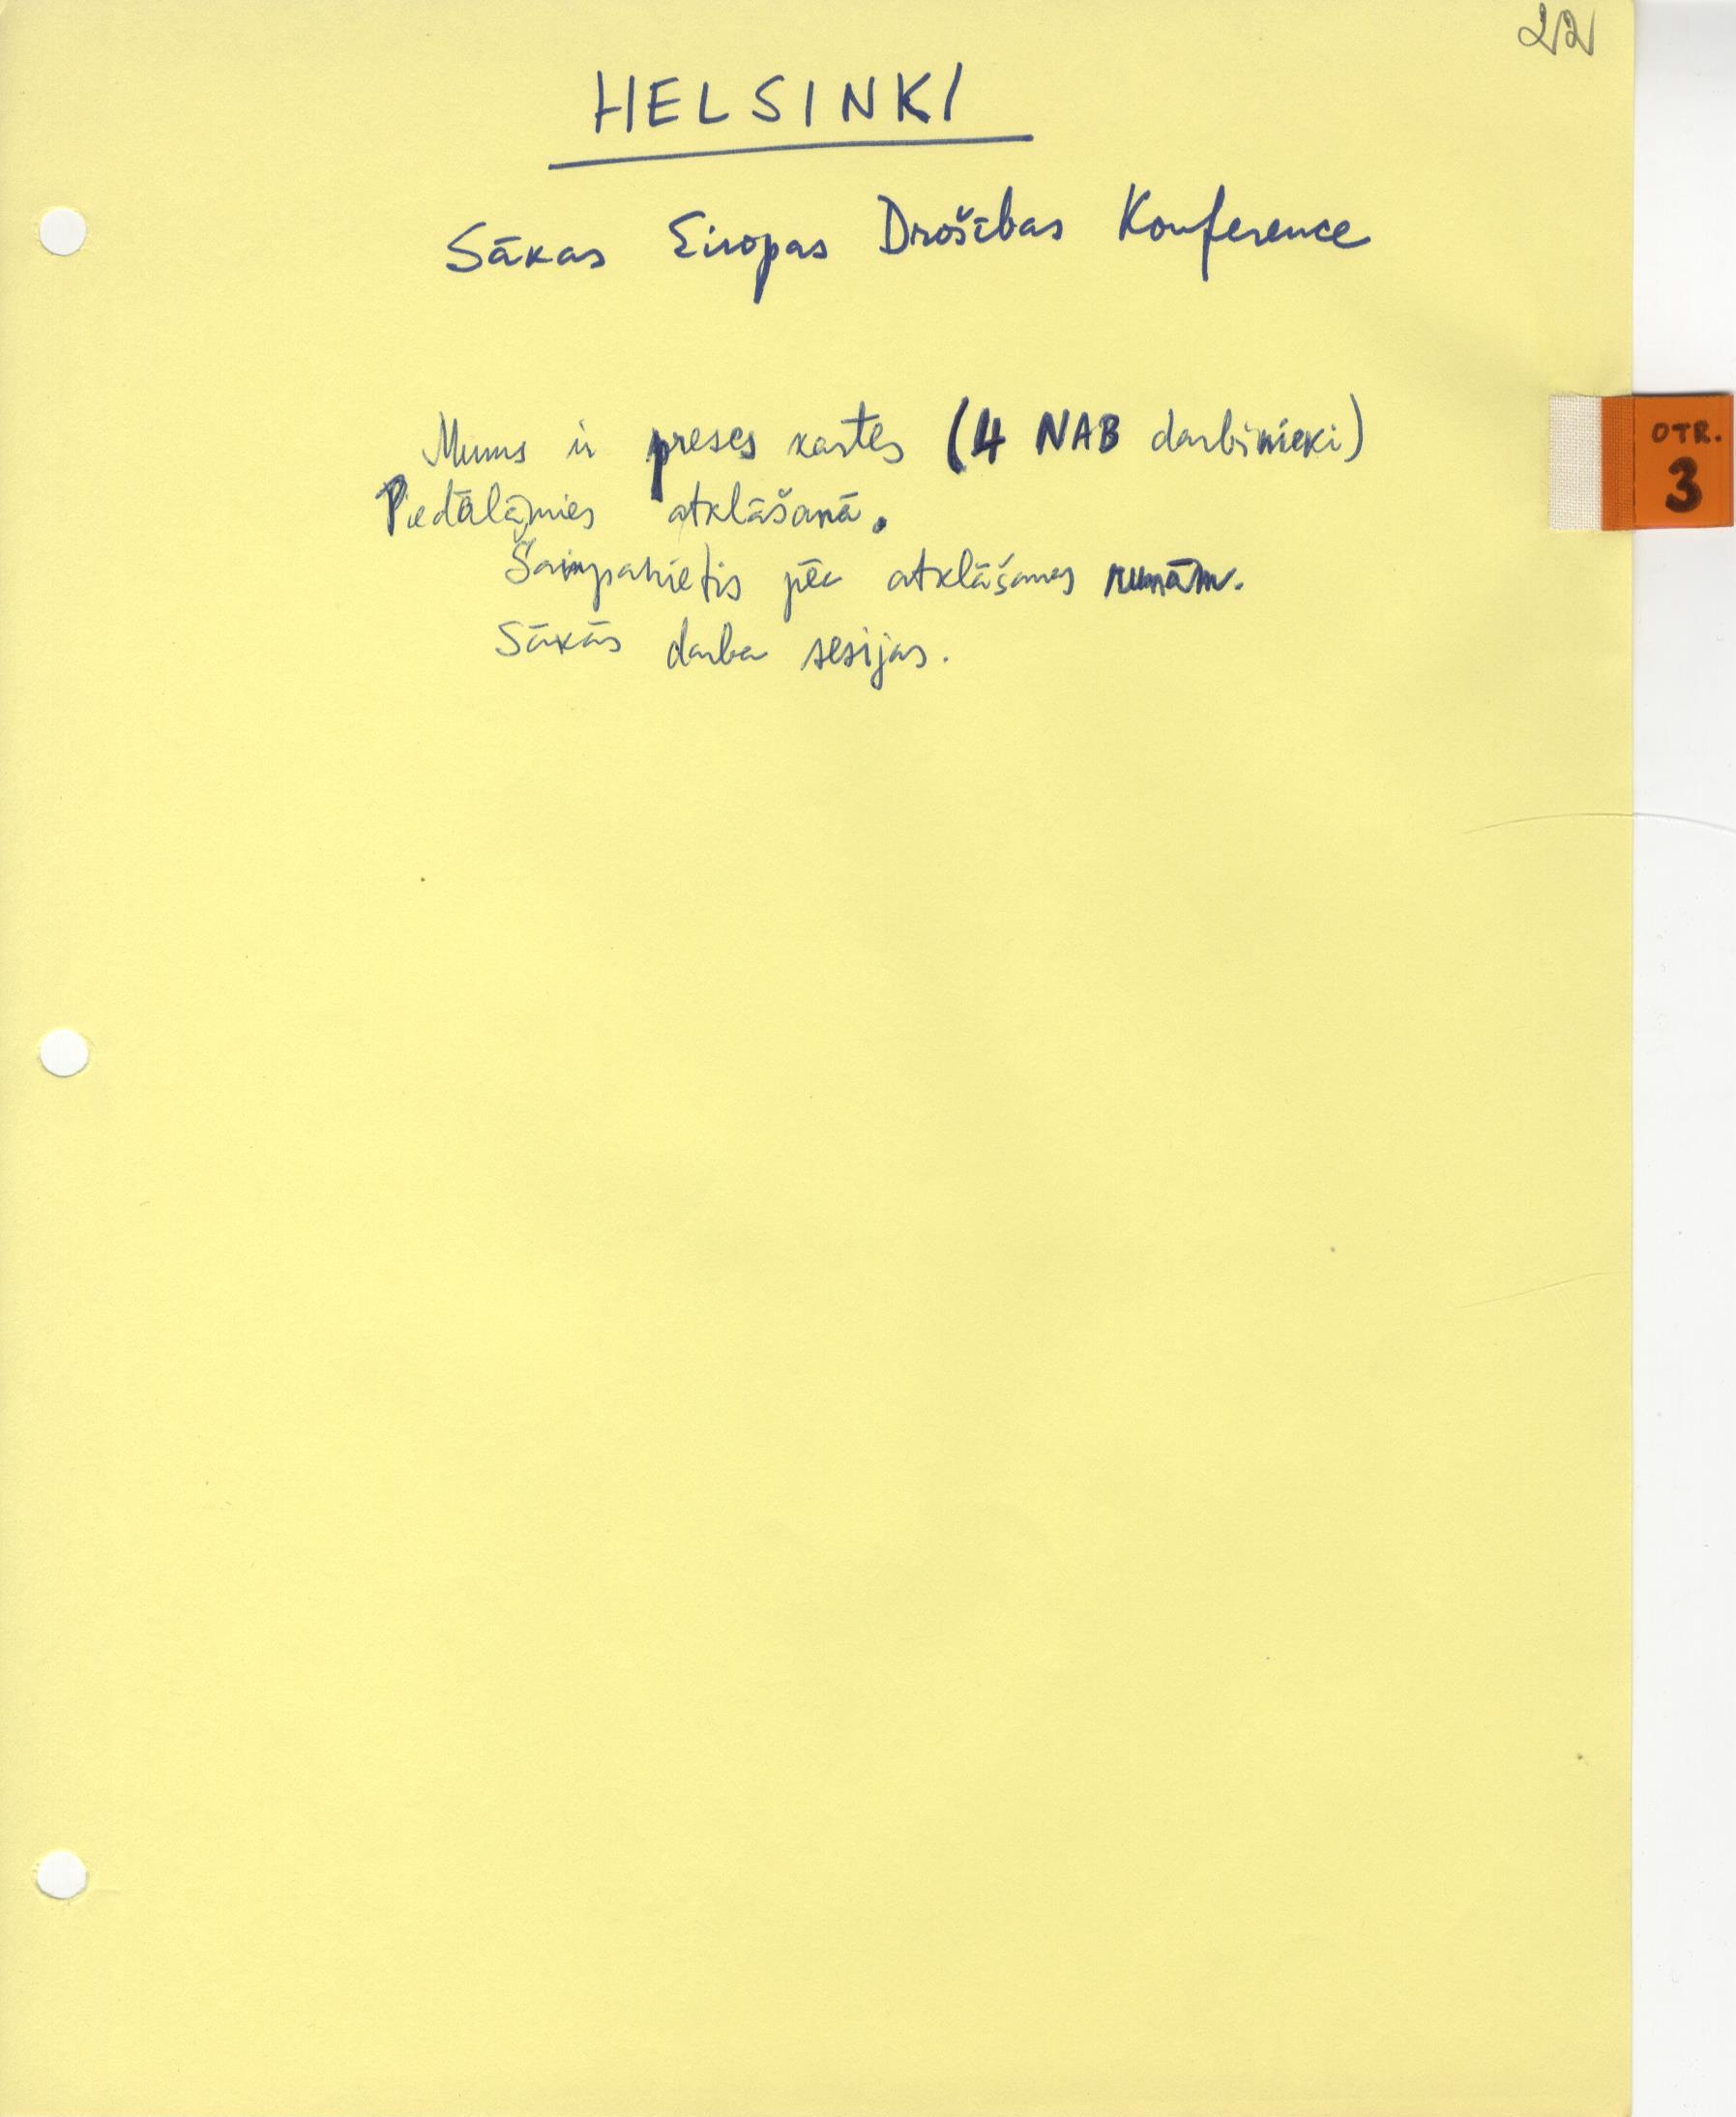 22
HELSINKI
Sākas Eiropas Drošības Konference
Mums ir preses kartes (4 NAB darbinieki)
OTR.
3
Piedālāmies atklāšanā.
Šampanietis pēc atklāšanas runām.
Sākās darba sesijas.